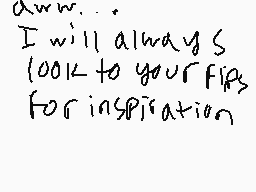 aww...
I will always
look to your flps
for inspiration